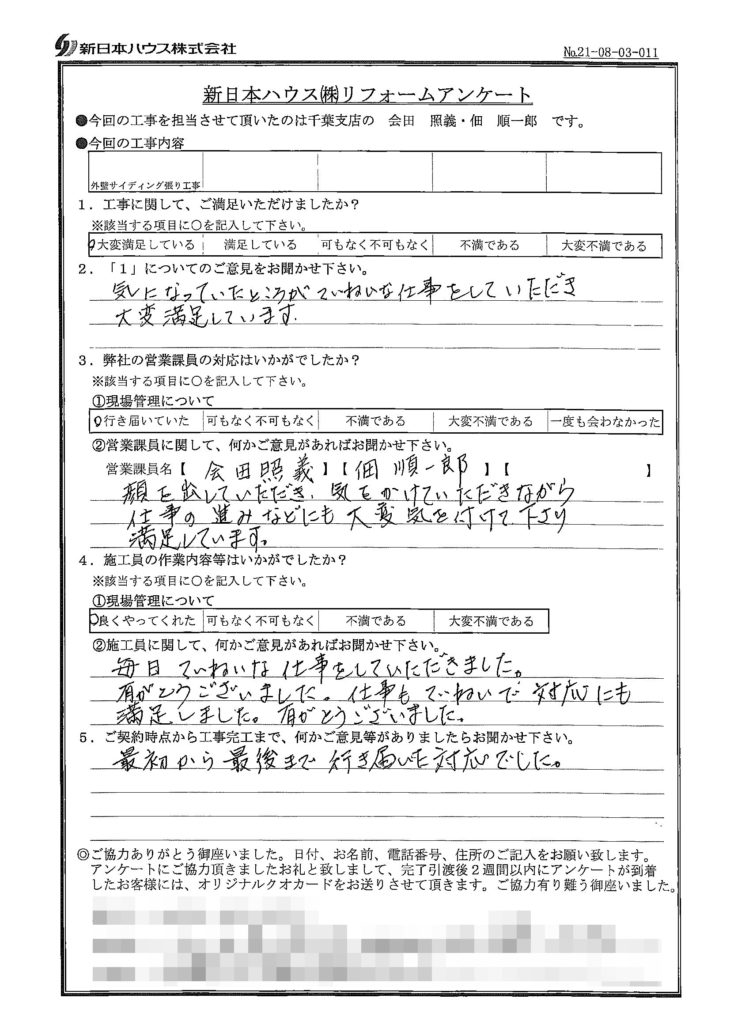 新日本ハウス株式会社
No.21-08-03-011
新日本ハウス㈱リフォームアンケート
●今回の工事を担当させて頂いたのは千葉支店の 会田 照義・佃 順一郎 です。
●今回の工事内容
外壁サイディング張り工事
1．工事に関して、ご満足いただけましたか？
※該当する項目に○を記入して下さい。
○大変満足している 満足している 可もなく不可もなく 不満である 大変不満である
2．「1」についてのご意見をお聞かせ下さい。
気になっていたところがていねいな仕事をしていただき
大変満足しています.
3．弊社の営業課員の対応はいかがでしたか？
※該当する項目に○を記入して下さい。
①現場管理について
○行き届いていた 可もなく不可もなく 不満である 大変不満である 一度も会わなかった
②営業課員に関して、何かご意見があればお聞かせ下さい。
営業課員名【 会田照義 】【 佃 順一郎 】【 】
顔を出していただき、気をかけていただきながら
仕事の進みなどにも大変気を付けて下さり
満足しています。
4．施工員の作業内容等はいかがでしたか？
※該当する項目に○を記入して下さい。
①現場管理について
○良くやってくれた 可もなく不可もなく 不満である 大変不満である
②施工員に関して、何かご意見があればお聞かせ下さい。
毎日ていねいな仕事をしていただきました。
有がとうございました。仕事もていねいで対応にも
満足しました。有がとうございました。
5．ご契約時点から工事完工まで、何かご意見等がありましたらお聞かせ下さい。
最初から最後まで行き届いた対応でした。
◎ご協力ありがとう御座いました。日付、お名前、電話番号、住所のご記入をお願い致します。
アンケートにご協力頂きましたお礼と致しまして、完了引渡後2週間以内にアンケートが到着
したお客様には、オリジナルクオカードをお送りさせて頂きます。ご協力有り難う御座いました。